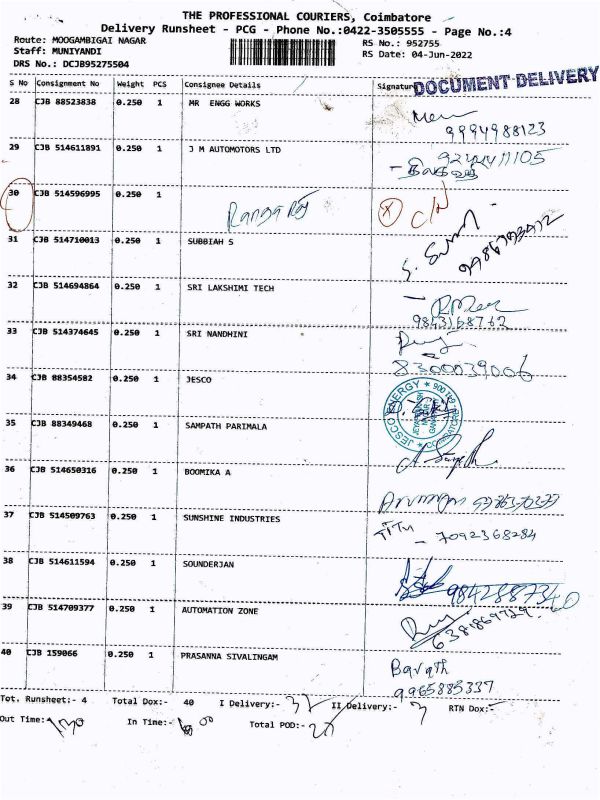 THE PROFESSIONAL COURIERS, Coimbatore
Delivery Runsheet - PCG - Phone No.:0422-3505555 - Page No.:4
Route: MOOGAMBIGAI NAGAR
RS No.: 952755
Staff: MUNIYANDI
RS Date: 04-Jun-2022
DRS No.: DCJB95275504
S No Consignment No Weight PCS Consignee Details Signature
DOCUMENT DELIVERY
28 CJB 88523838 0.250 1 MR ENGG WORKS
9994988123
29 CJB 514611891 0.250 1 J M AUTOMOTORS LTD
30 CJB 514596995 0.250 1
31 CJB 514710013 0.250 1 SUBBIAH S
32 CJB 514694864 0.250 1 SRI LAKSHIMI TECH
9843168762
33 CJB 514374645 0.250 1 SRI NANDHINI
8300039006
34 CJB 88354582 0.250 1 JESCO
JESCO ENERGY
35 CJB 88349468 0.250 1 SAMPATH PARIMALA
36 CJB 514650316 0.250 1 BOOMIKA A
37 CJB 514509763 0.250 1 SUNSHINE INDUSTRIES
- 7092368284
38 CJB 514611594 0.250 1 SOUNDERJAN
39 CJB 514709377 0.250 1 AUTOMATION ZONE
40 CJB 159066 0.250 1 PRASANNA SIVALINGAM
Barath
9965885337
Tot. Runsheet:- 4 Total Dox:- 40 I Delivery:- II Delivery:- 3 RTN Dox:-
Out Time:- In Time:- Total POD:-